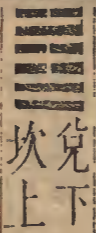 兌下
坎上